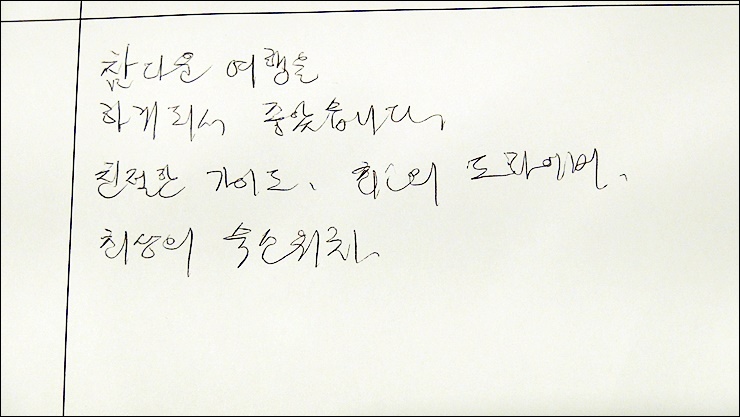 참다운 여행을
하게되서 좋았습니다.
친절한 가이드, 최고의 드라이버,
최상의 숙소위치.